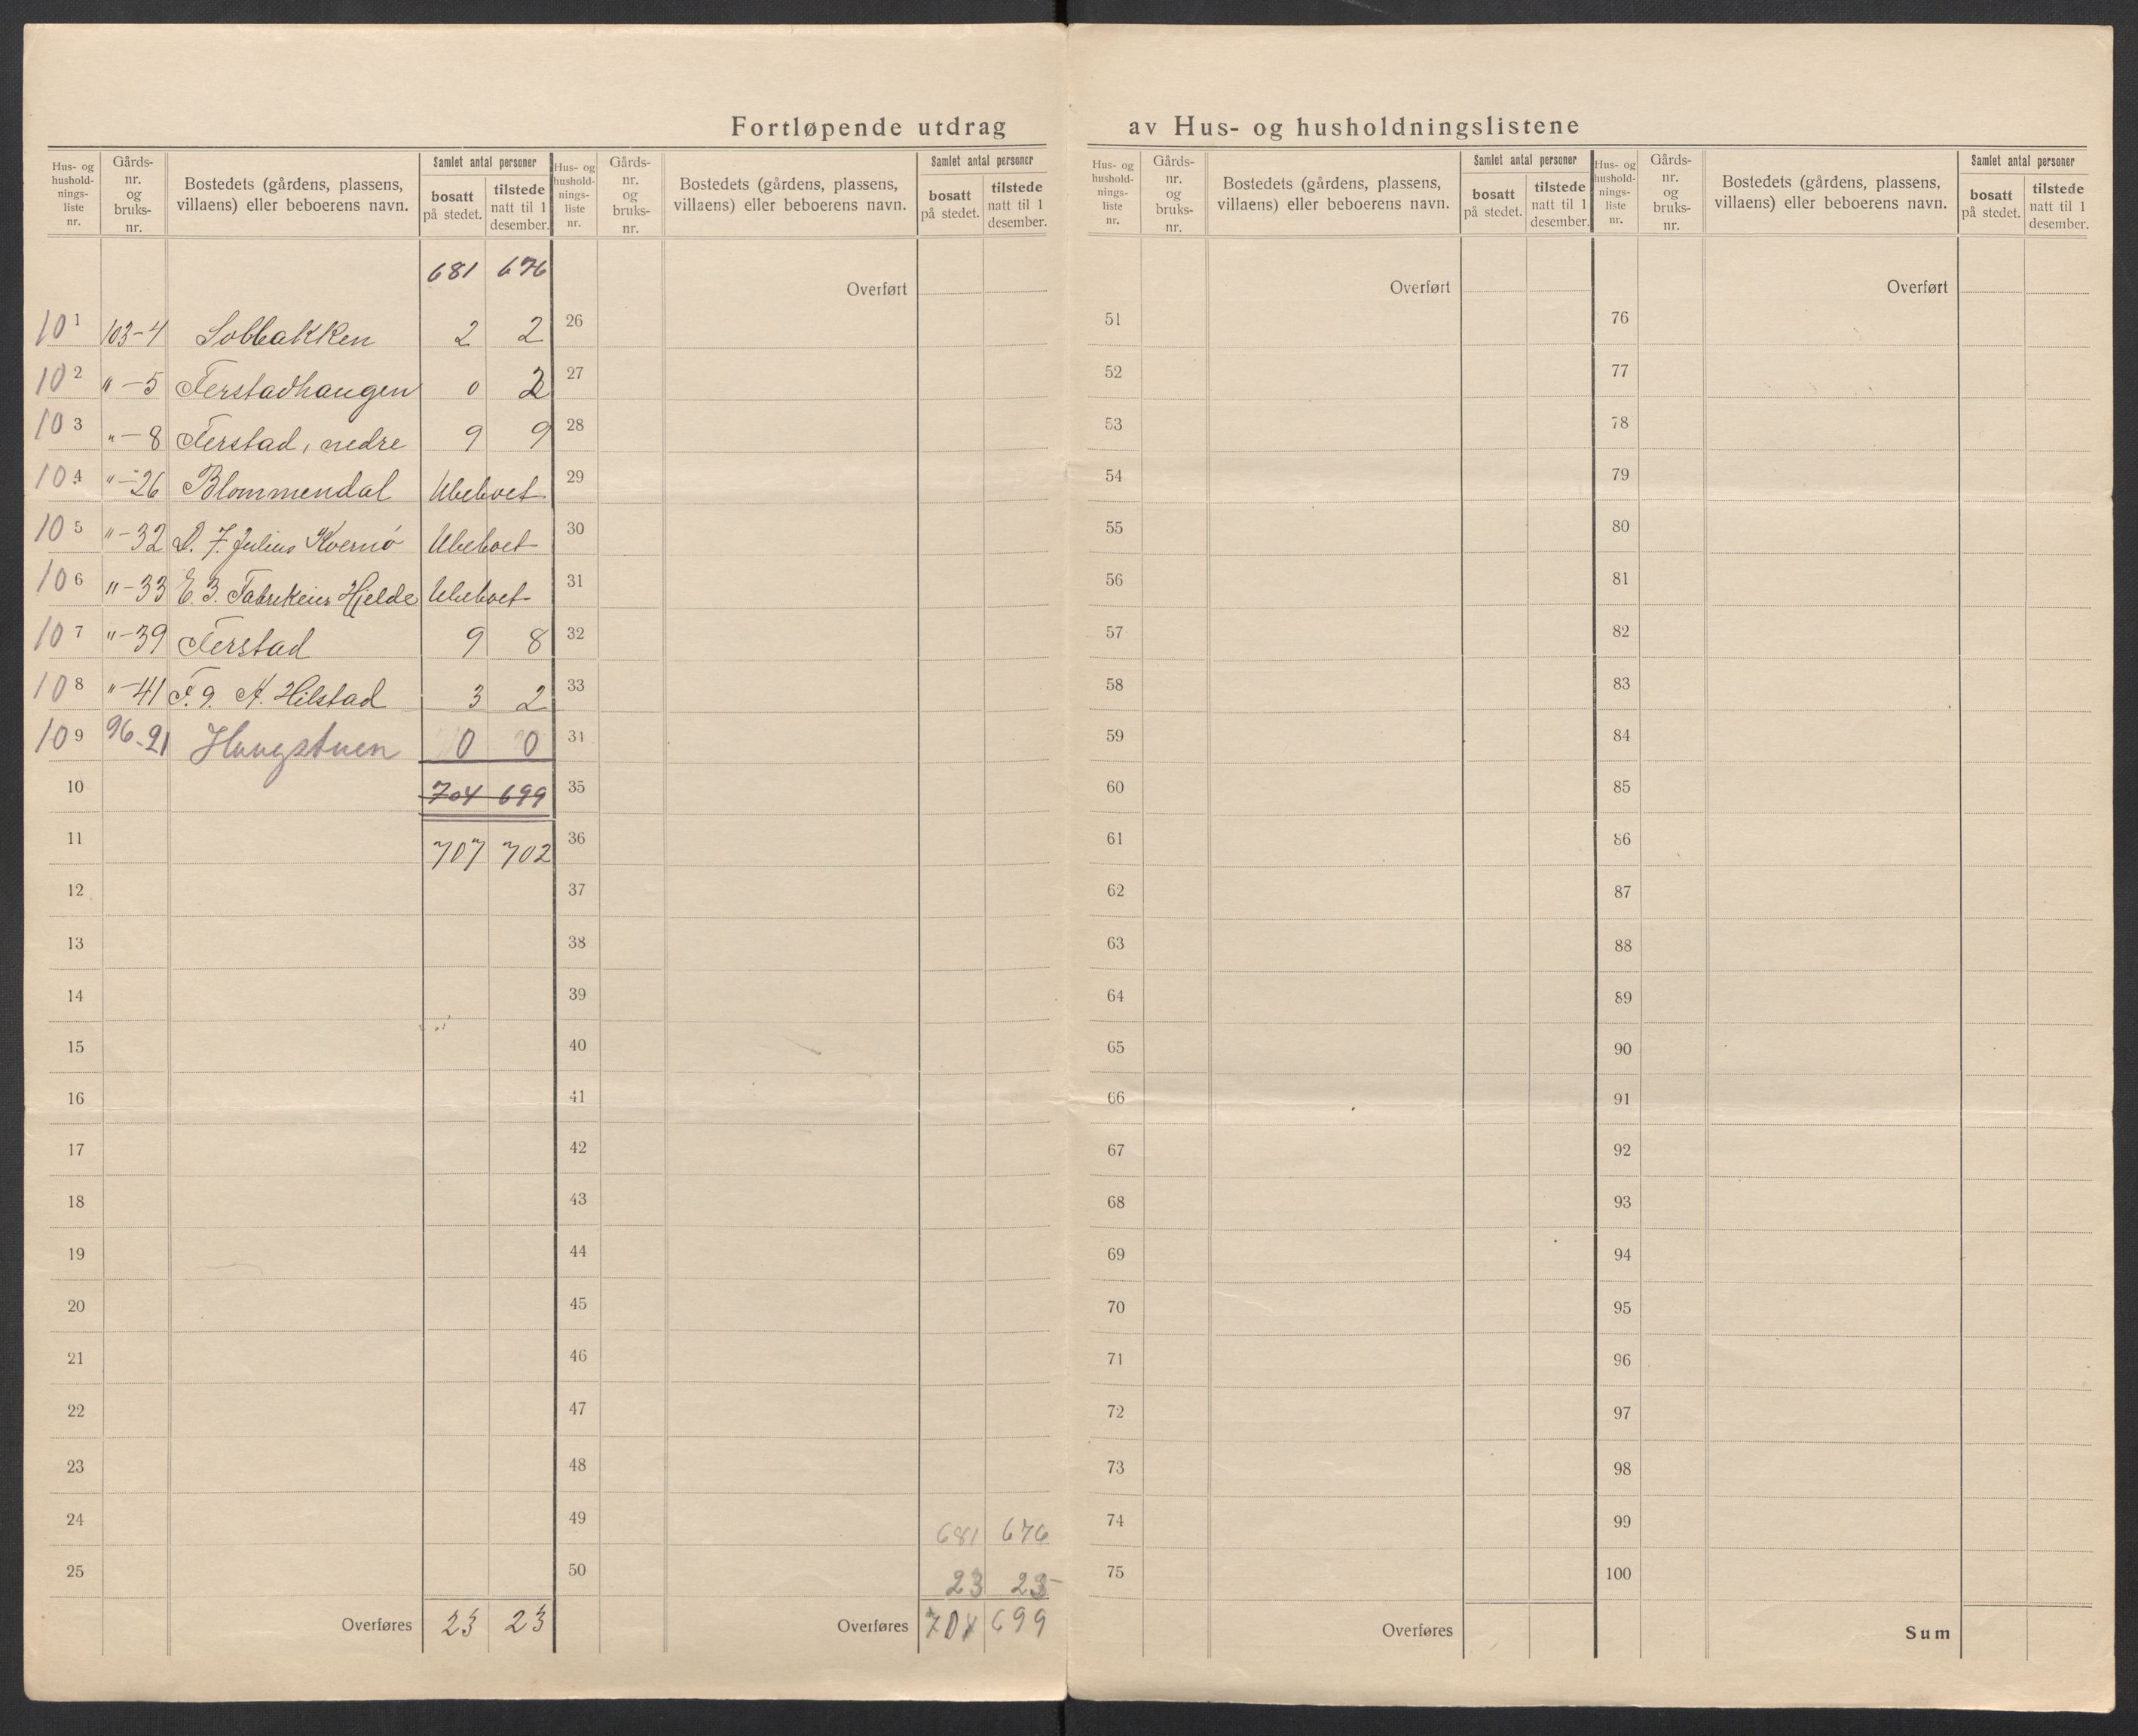 Fortløpende utdrag av Hus- og husholdningslistene
Hus- og hushold-nings-liste nr. | Gårds-nr. og bruks-nr. | Bostedets (gårdens, plassens, villaens) eller beboerens navn. | Samlet antal personer | bosatt på stedet. | tilstede natt til 1 desember.
681 676
101 103-4 Solbakken 2 2
102 "-5 Terstadhaugen 0 2
103 "-8 Terstad, nedre 9 9
104 "-26 Blommendal Ubeboet
105 "-32 Julius Kvernø Ubeboet
106 "-33 E. 3. Fabrikeier Hjelde Ubeboet
107 "-39 Terstad 9 8
108 "-41 Hilstad 3 2
109 96-21 Haugstuen 0 0
10 704 699
11 707 702
12
13
14
15
16
17
18
19
20
21
22
23
24
25
Overføres 23 23
Hus- og hushold-nings-liste nr. | Gårds-nr. og bruks-nr. | Bostedets (gårdens, plassens, villaens) eller beboerens navn. | Samlet antal personer | bosatt på stedet. | tilstede natt til 1 desember.
Overført
26
27
28
29
30
31
32
33
34
35
36
37
38
39
40
41
42
43
44
45
46
47
48
49 681 676
50 23 23
Overføres 704 699
Hus- og hushold-nings-liste nr. | Gårds-nr. og bruks-nr. | Bostedets (gårdens, plassens, villaens) eller beboerens navn. | Samlet antal personer | bosatt på stedet. | tilstede natt til 1 desember.
Overført
51
52
53
54
55
56
57
58
59
60
61
62
63
64
65
66
67
68
69
70
71
72
73
74
75
Overføres
Hus- og hushold-nings-liste nr. | Gårds-nr. og bruks-nr. | Bostedets (gårdens, plassens, villaens) eller beboerens navn. | Samlet antal personer | bosatt på stedet. | tilstede natt til 1 desember.
Overført
76
77
78
79
80
81
82
83
84
85
86
87
88
89
90
91
92
93
94
95
96
97
98
99
100
Sum